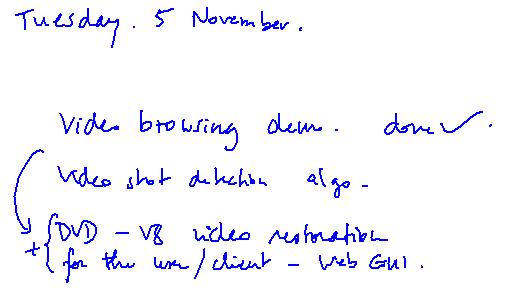 Tuesday. 5 November.
Video browsing demo. done ✓.
Video shot detection algo -
+ { DVD - V8 video restoration
for the user/client - Web GUI.